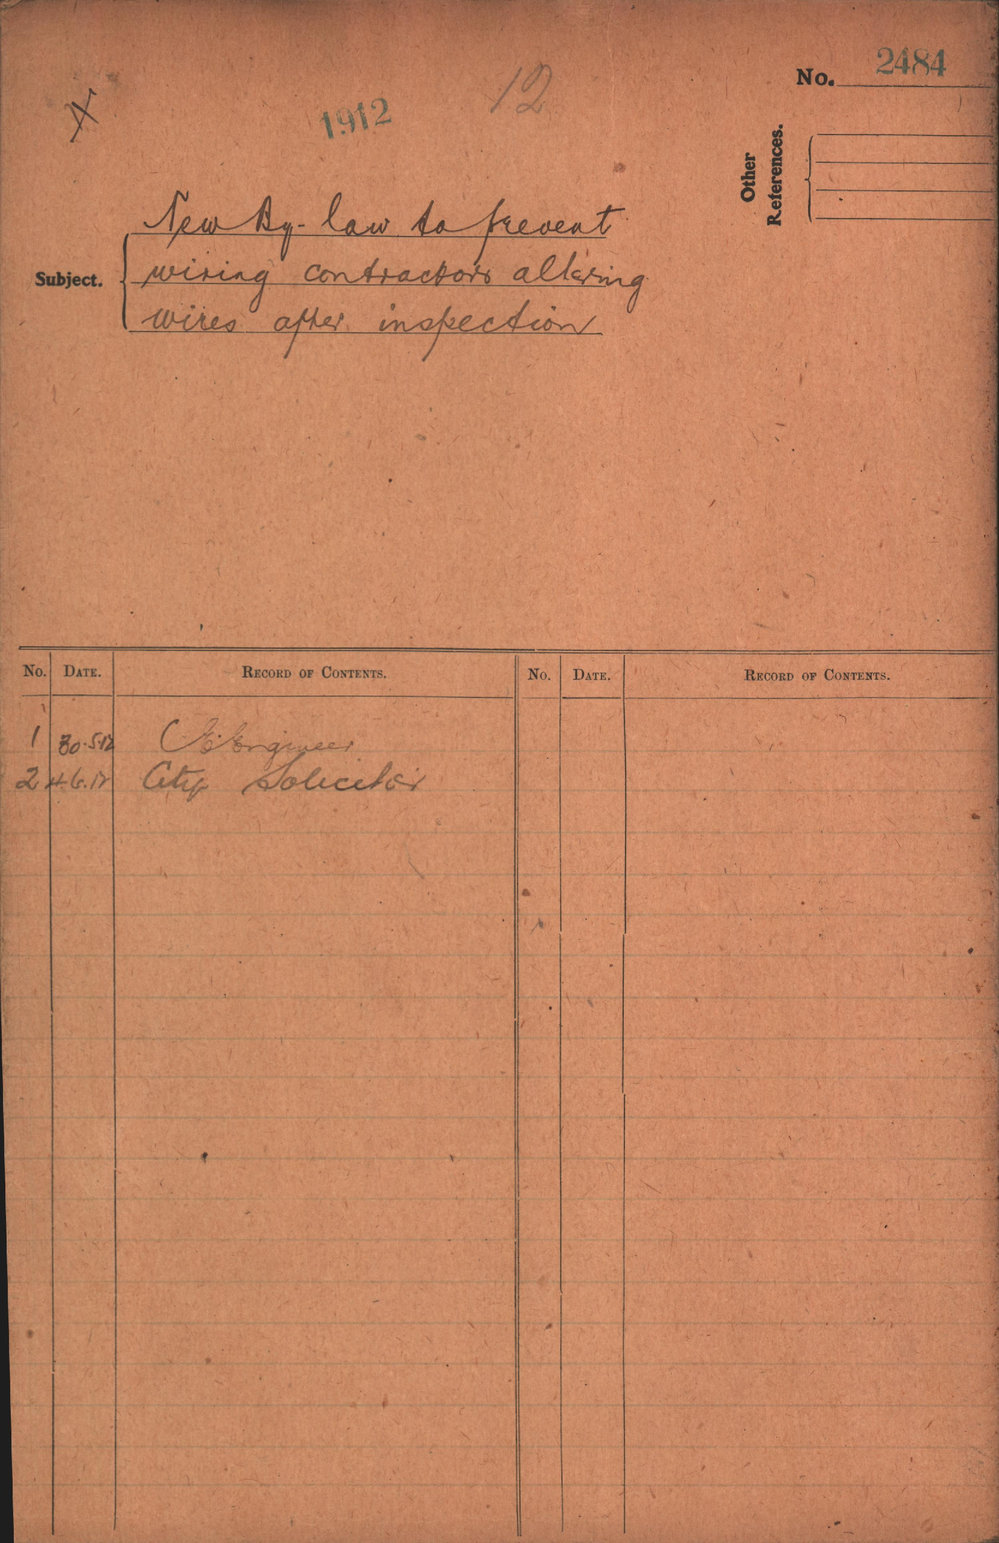 No. 2484
12
1912
Other
References.
Subject.
New By-law to prevent
wiring contractors altering
wires after inspection
No. DATE. RECORD OF CONTENTS. No. DATE. RECORD OF CONTENTS.
1 30.5.12 Engineer
2 4.6.12 City Solicitor